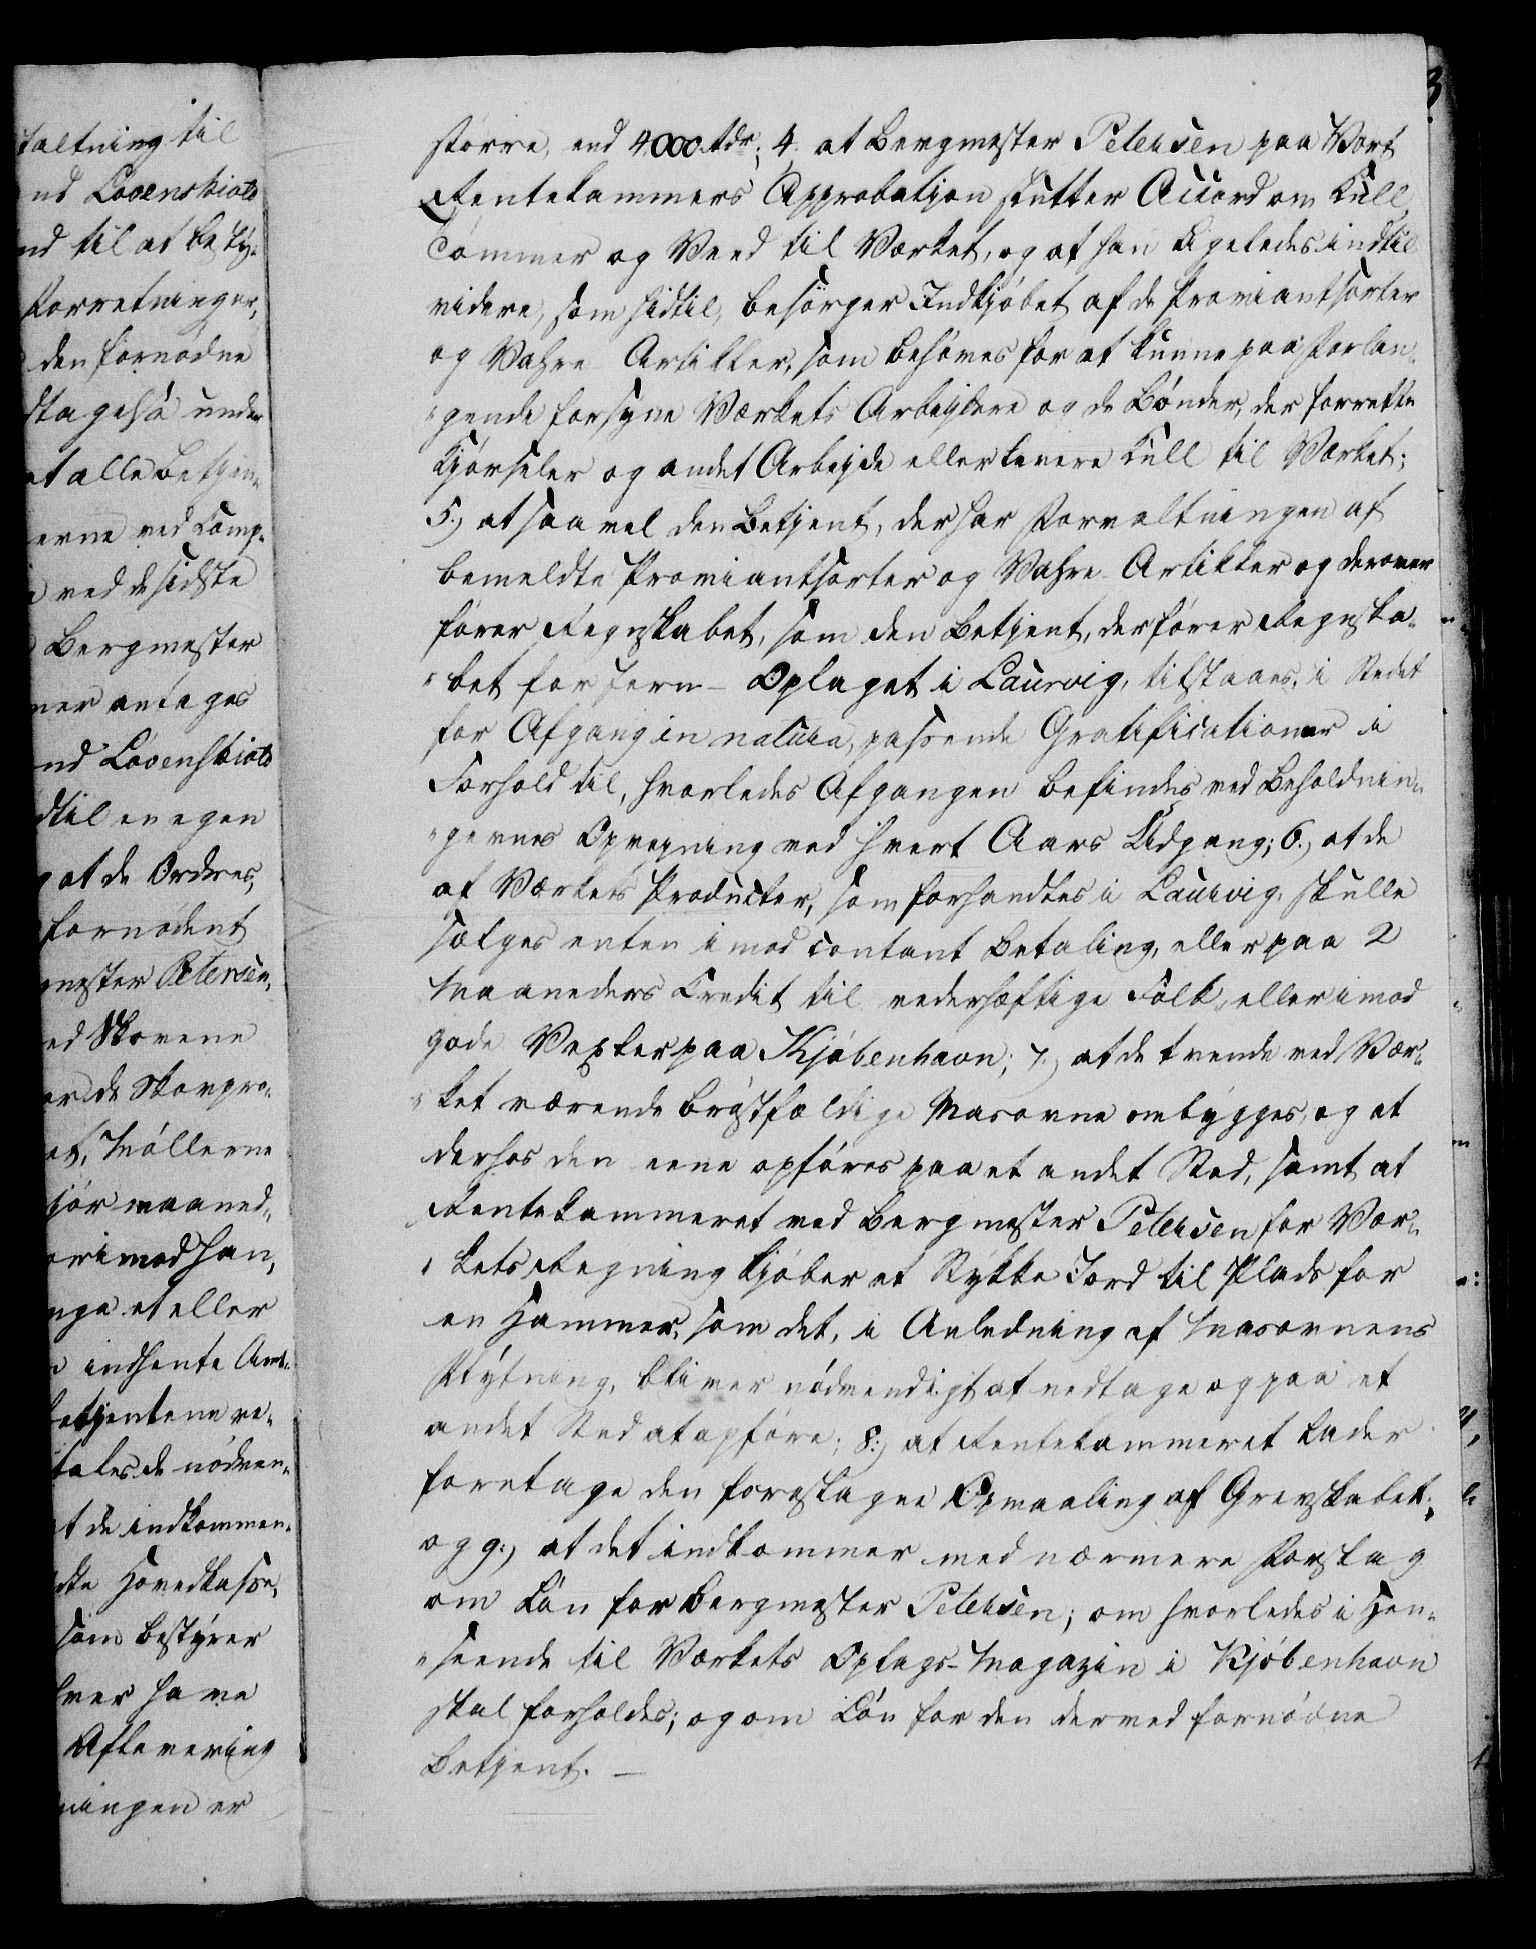 taltning til
nd Løvenskiold
nd til at bety-
Forretninger,
den fornødne
dtagesaa under
et alle Betjen-
erne ved Comp-
ved de sidste
Bergmester
ner antages
nd Løvenskiold
dtil en egen
at de Ordres,
fornødent
mester Petersen,
ed Skovene
or de Skovpro-
et, Møllerne
giør maaned-
orimod han,
nge et eller
indhente Amt-
etjentene ve-
tales de nødven-
t de indkommen-
dte Hovedkasse,
som bestyrer
lver have
Aflevering
ningen er
3
større, end 4000 rdr; 4. at Bergmester Petersen paa Vort
Rentekammers Approbation slutter Accord om Kull,
Tømmer og Veed til Værket, og at han ligeledes indtil
videre, som hidtil, besørger Indkjøbet af de Proviantsorter
og Vahre Artikler, som behøves for at kunne paa Forlan-
gende forsyne Værkets Arbejdere og de Bønder, der forrette
Kjørseler og andet Arbejde eller levere Kull til Værket;
5.) at saavel den Betjent, der har Forvaltningen af
bemeldte Proviantsorter og Vahre-Artikler og derover
fører Regnskabet, som den Betjent, der fører Regnska-
bet for Jern-Oplaget i Laurvig, tilstaaes, i Stedet
for Afgang in natura, passende Gratificationer i
Forhold til, hvorledes Afgangen befindes ved Beholdnin-
gernes Opvejning ved hvert Aars Udgang; 6.) at de
af Værkets Producter, som forhandles i Laurvig, skulle
sælges enten imod contant Betaling, eller paa 2
Maaneders Credit til vederhæftige Folk, eller imod
gode Vexler paa Kjøbenhavn; 7.) at de tvende ved Vær-
ket værende brøstfældige Masovne ombygges, og at
derhos den eene opføres paa et andet Sted, samt at
Rentekammeret ved Bergmester Petersen for Vær-
kets Regning kjøber et Stykke Jord til Plads for
en Hammer, som det, i Anledning af Masovnens
Flytning, bliver nødvendigt at nedtage og paa et
andet Sted at opføre; 8:) at Rentekammeret lader
foretage den foreslagne Opmaaling af Grevskabet;
og 9:) at det indkommer med nærmere Forslag
om Løn for Bergmester Petersen; om hvorledes i Hen-
seende til Værkets Oplags-Magazin i Kjøbenhavn
skal forholdes; og om Løn for den derved fornødne
Betjent. —